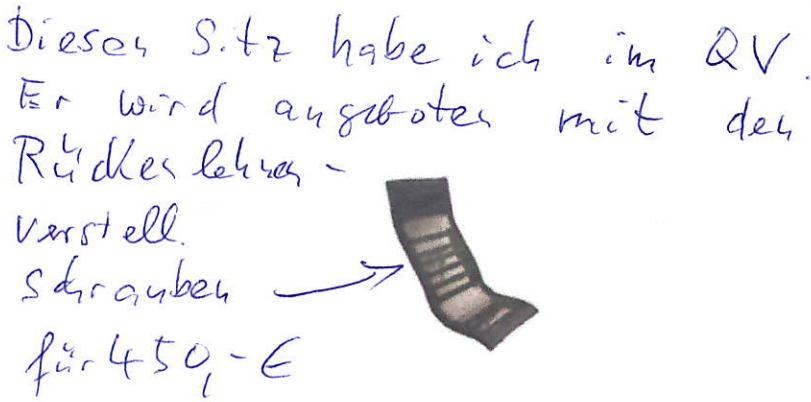 Diesen Sitz habe ich im QV.
Er wird angeboten mit den
Rückenlehnen-
verstell.
schrauben
für 450,- €